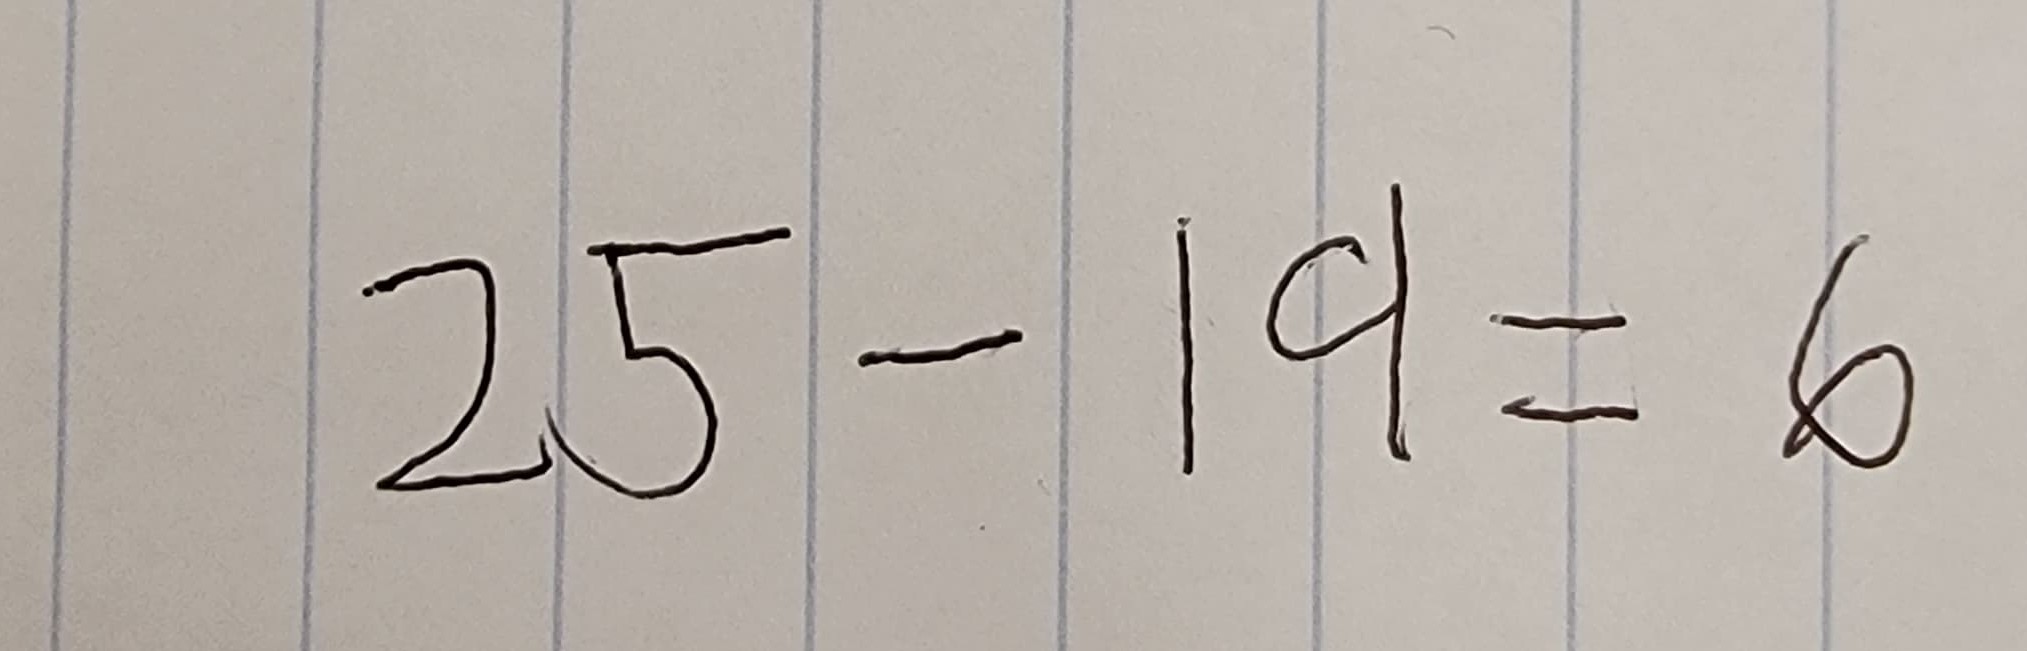 25 - 19 = 6